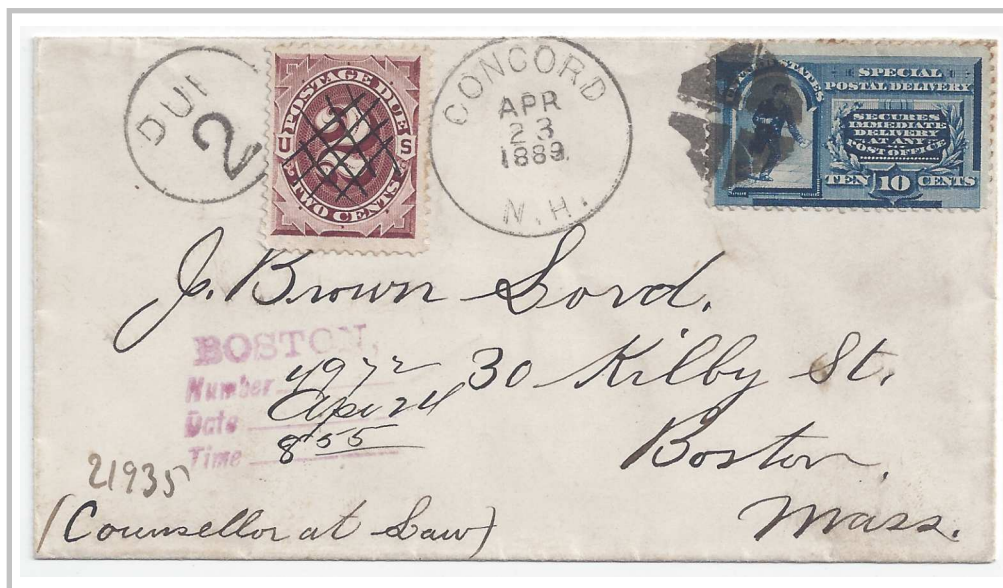 DUE
2
POSTAGE DUE
U S
2
TWO CENTS
CONCORD
APR
23
1889
N.H.
STATES
SPECIAL
POSTAL DELIVERY
SECURES
IMMEDIATE
DELIVERY
AT ANY
POST OFFICE
TEN 10 CENTS
J. Brown Lord.
30 Kilby St.
Boston.
Mass.
BOSTON,
Number 4972
Date Apr 24
Time 8 55
21935
(Counsellor at Law)